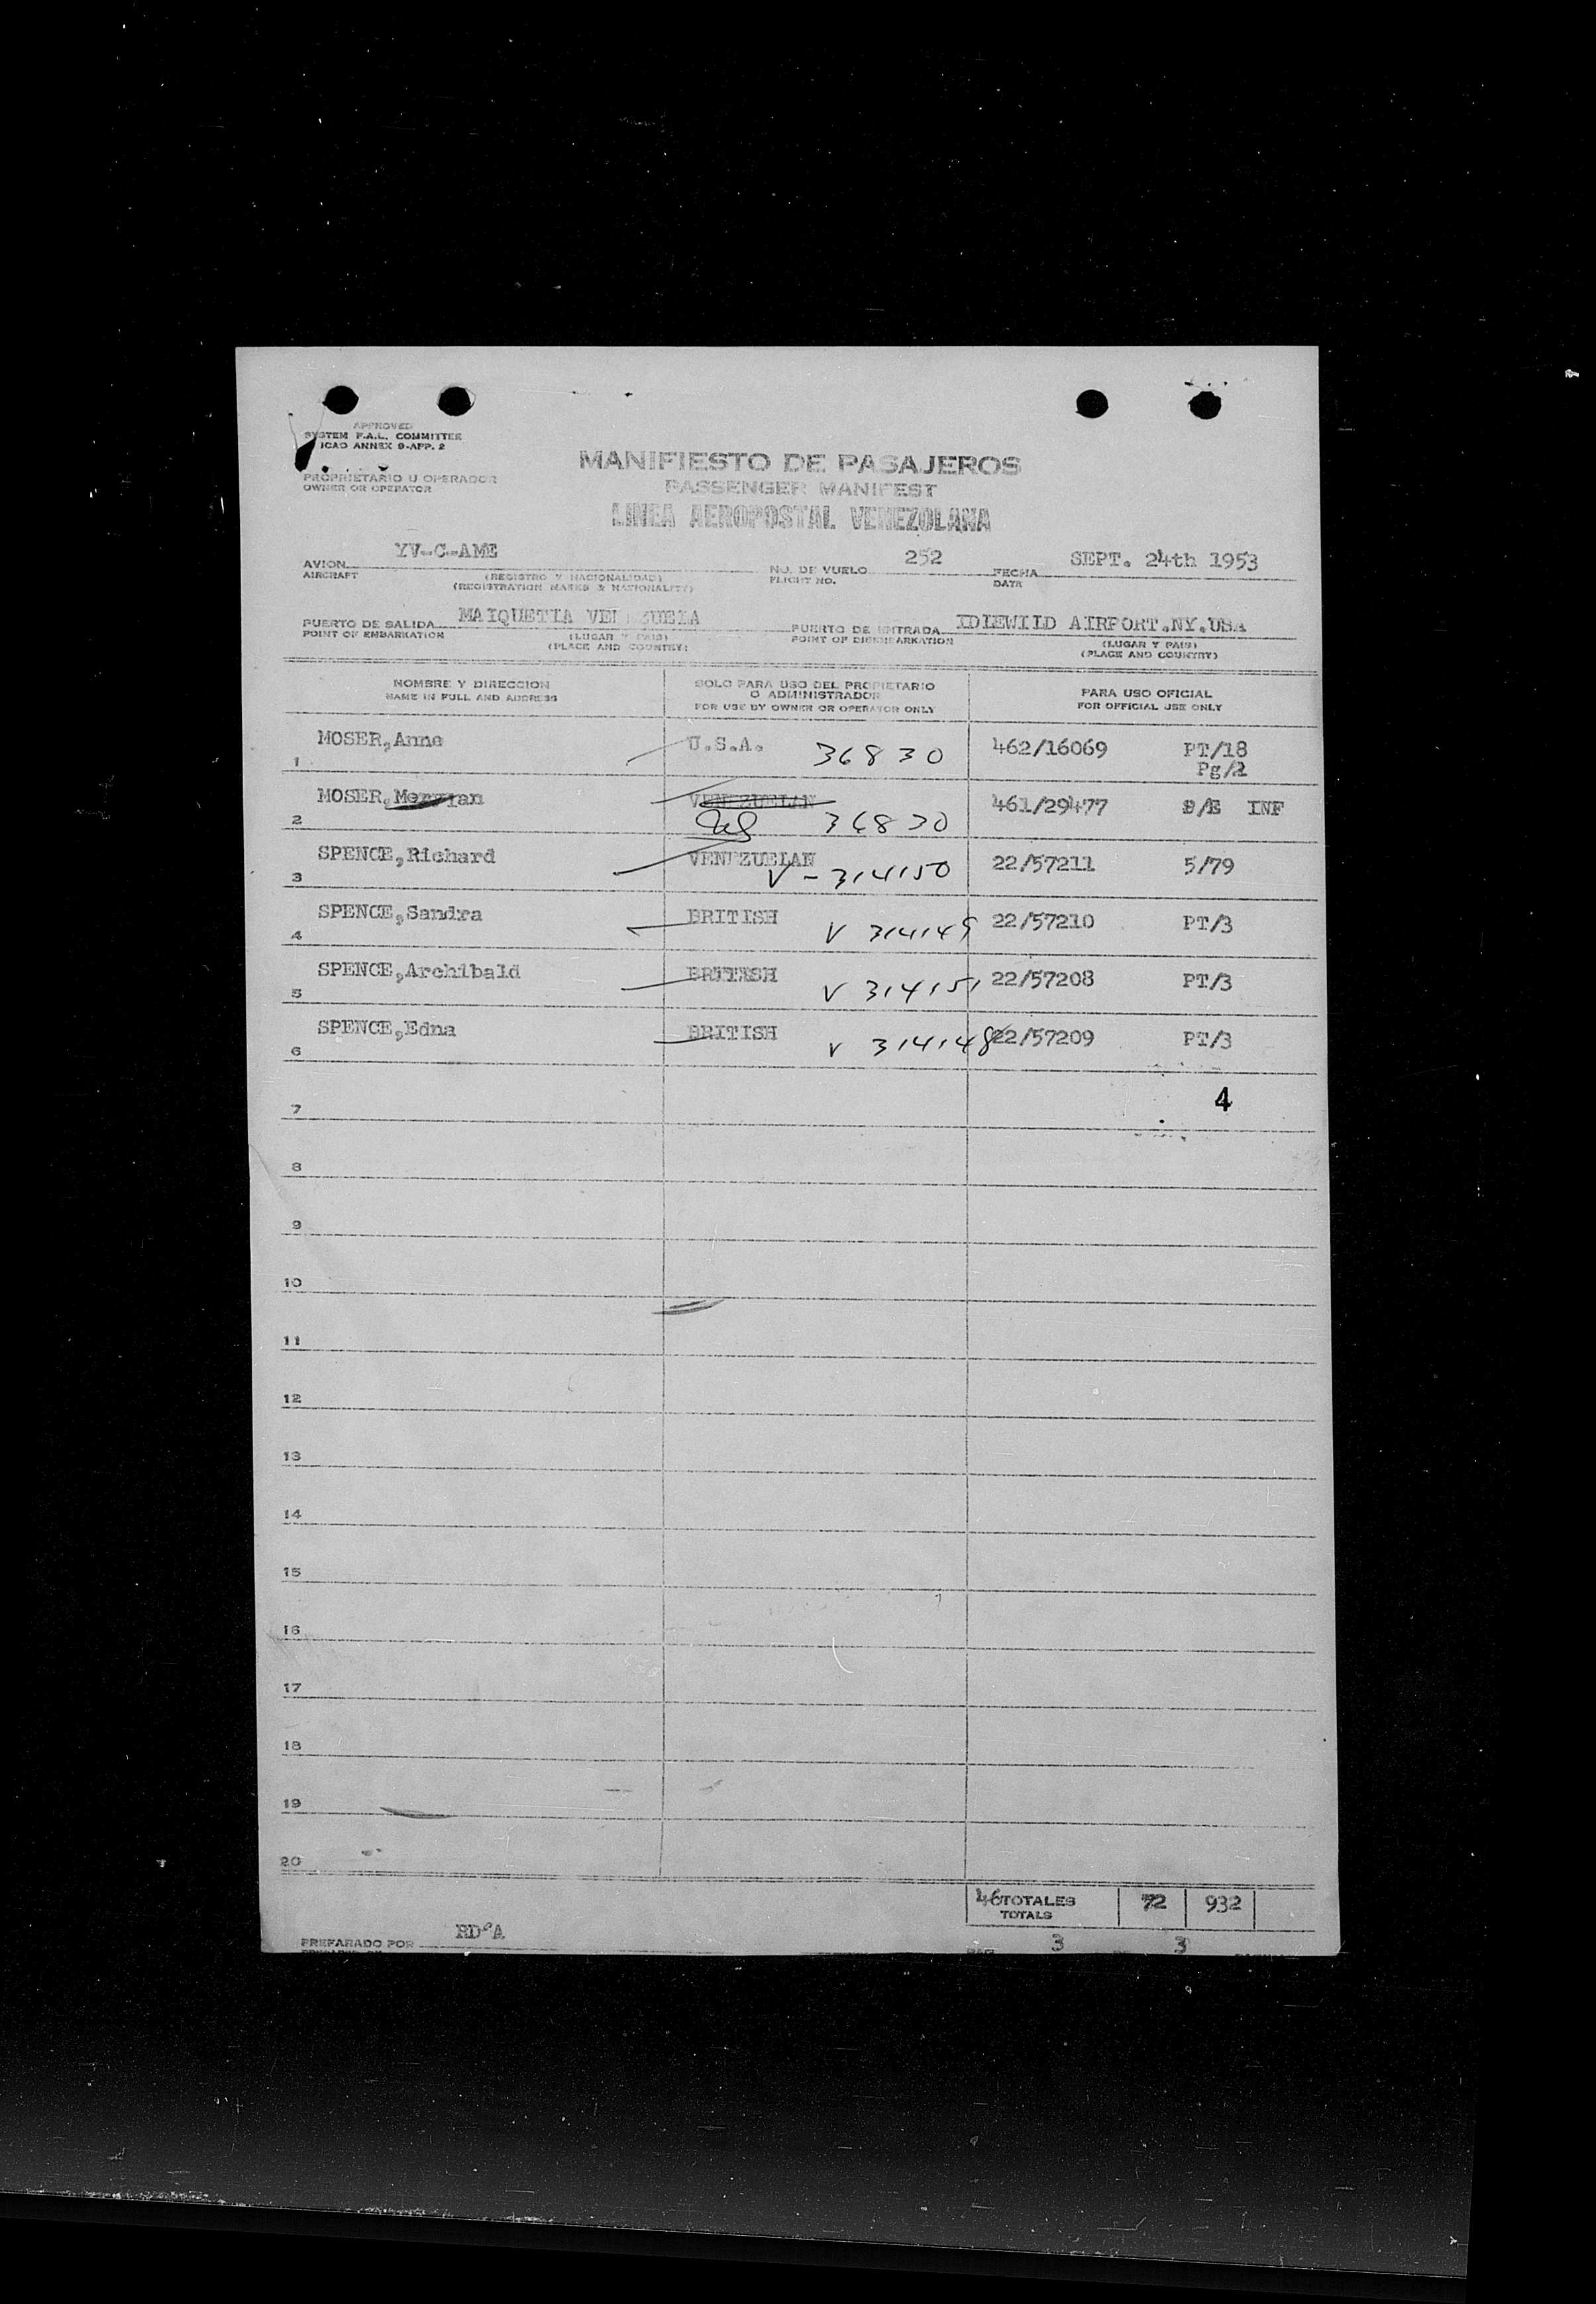 APPROVED
SYSTEM F.A.L. COMMITTEE
ICAO ANNEX 9-APP. 2
PROPRIETARIO U OPERADOR
OWNER OR OPERATOR
MANIFIESTO DE PASAJEROS
PASSENGER MANIFEST
LINEA AEROPOSTAL VENEZOLANA
AVION YV-C-AME NO. DE VUELO 252 FECHA SEPT. 24th 1953
AIRCRAFT (REGISTRO Y NACIONALIDAD) FLIGHT NO. DATE
(REGISTRATION MARKS & NATIONALITY)
PUERTO DE SALIDA MAIQUETIA VENEZUELA PUERTO DE ENTRADA IDLEWILD AIRPORT.NY.USA
POINT OF EMBARKATION (LUGAR Y PAIS) POINT OF DISEMBARKATION (LUGAR Y PAIS)
(PLACE AND COUNTRY) (PLACE AND COUNTRY)
NOMBRE Y DIRECCION SOLO PARA USO DEL PROPIETARIO PARA USO OFICIAL
NAME IN FULL AND ADDRESS O ADMINISTRADOR FOR OFFICIAL USE ONLY
FOR USE BY OWNER OR OPERATOR ONLY
1 MOSER,Anne U.S.A. 36830 462/16069 PT/18
Pg/2
2 MOSER, VENEZUELAN 461/29477 INF
36830
3 SPENCE,Richard VENEZUELAN 22/57211 5/79
V-314150
4 SPENCE,Sandra BRITISH V 314149 22/57210 PT/3
5 SPENCE,Archibald BRITISH V 314151 22/57208 PT/3
6 SPENCE,Edna BRITISH V 314148 22/57209 PT/3
7 4
8
9
10
11
12
13
14
15
16
17
18
19
20
46 TOTALES 72 932
TOTALS
PREPARADO POR RD°A 3 3